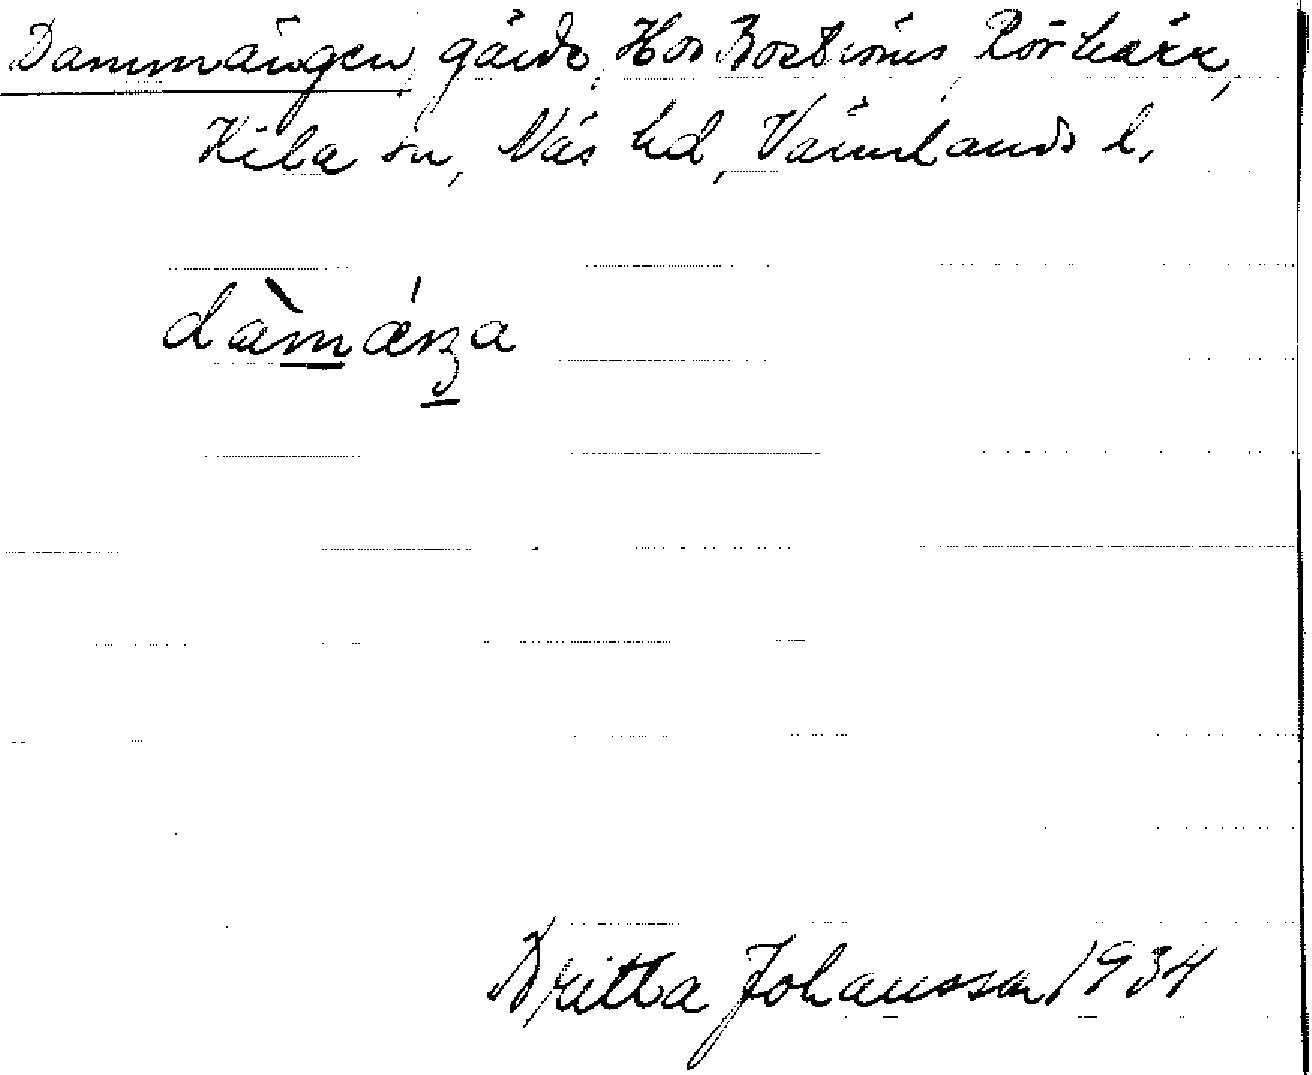 Dammängen, gärde, Hos Boströms, Rörkärr,
Kila sn, Näs hd, Värmlands l.
dàmǽŋa
Britta Johansson 1934